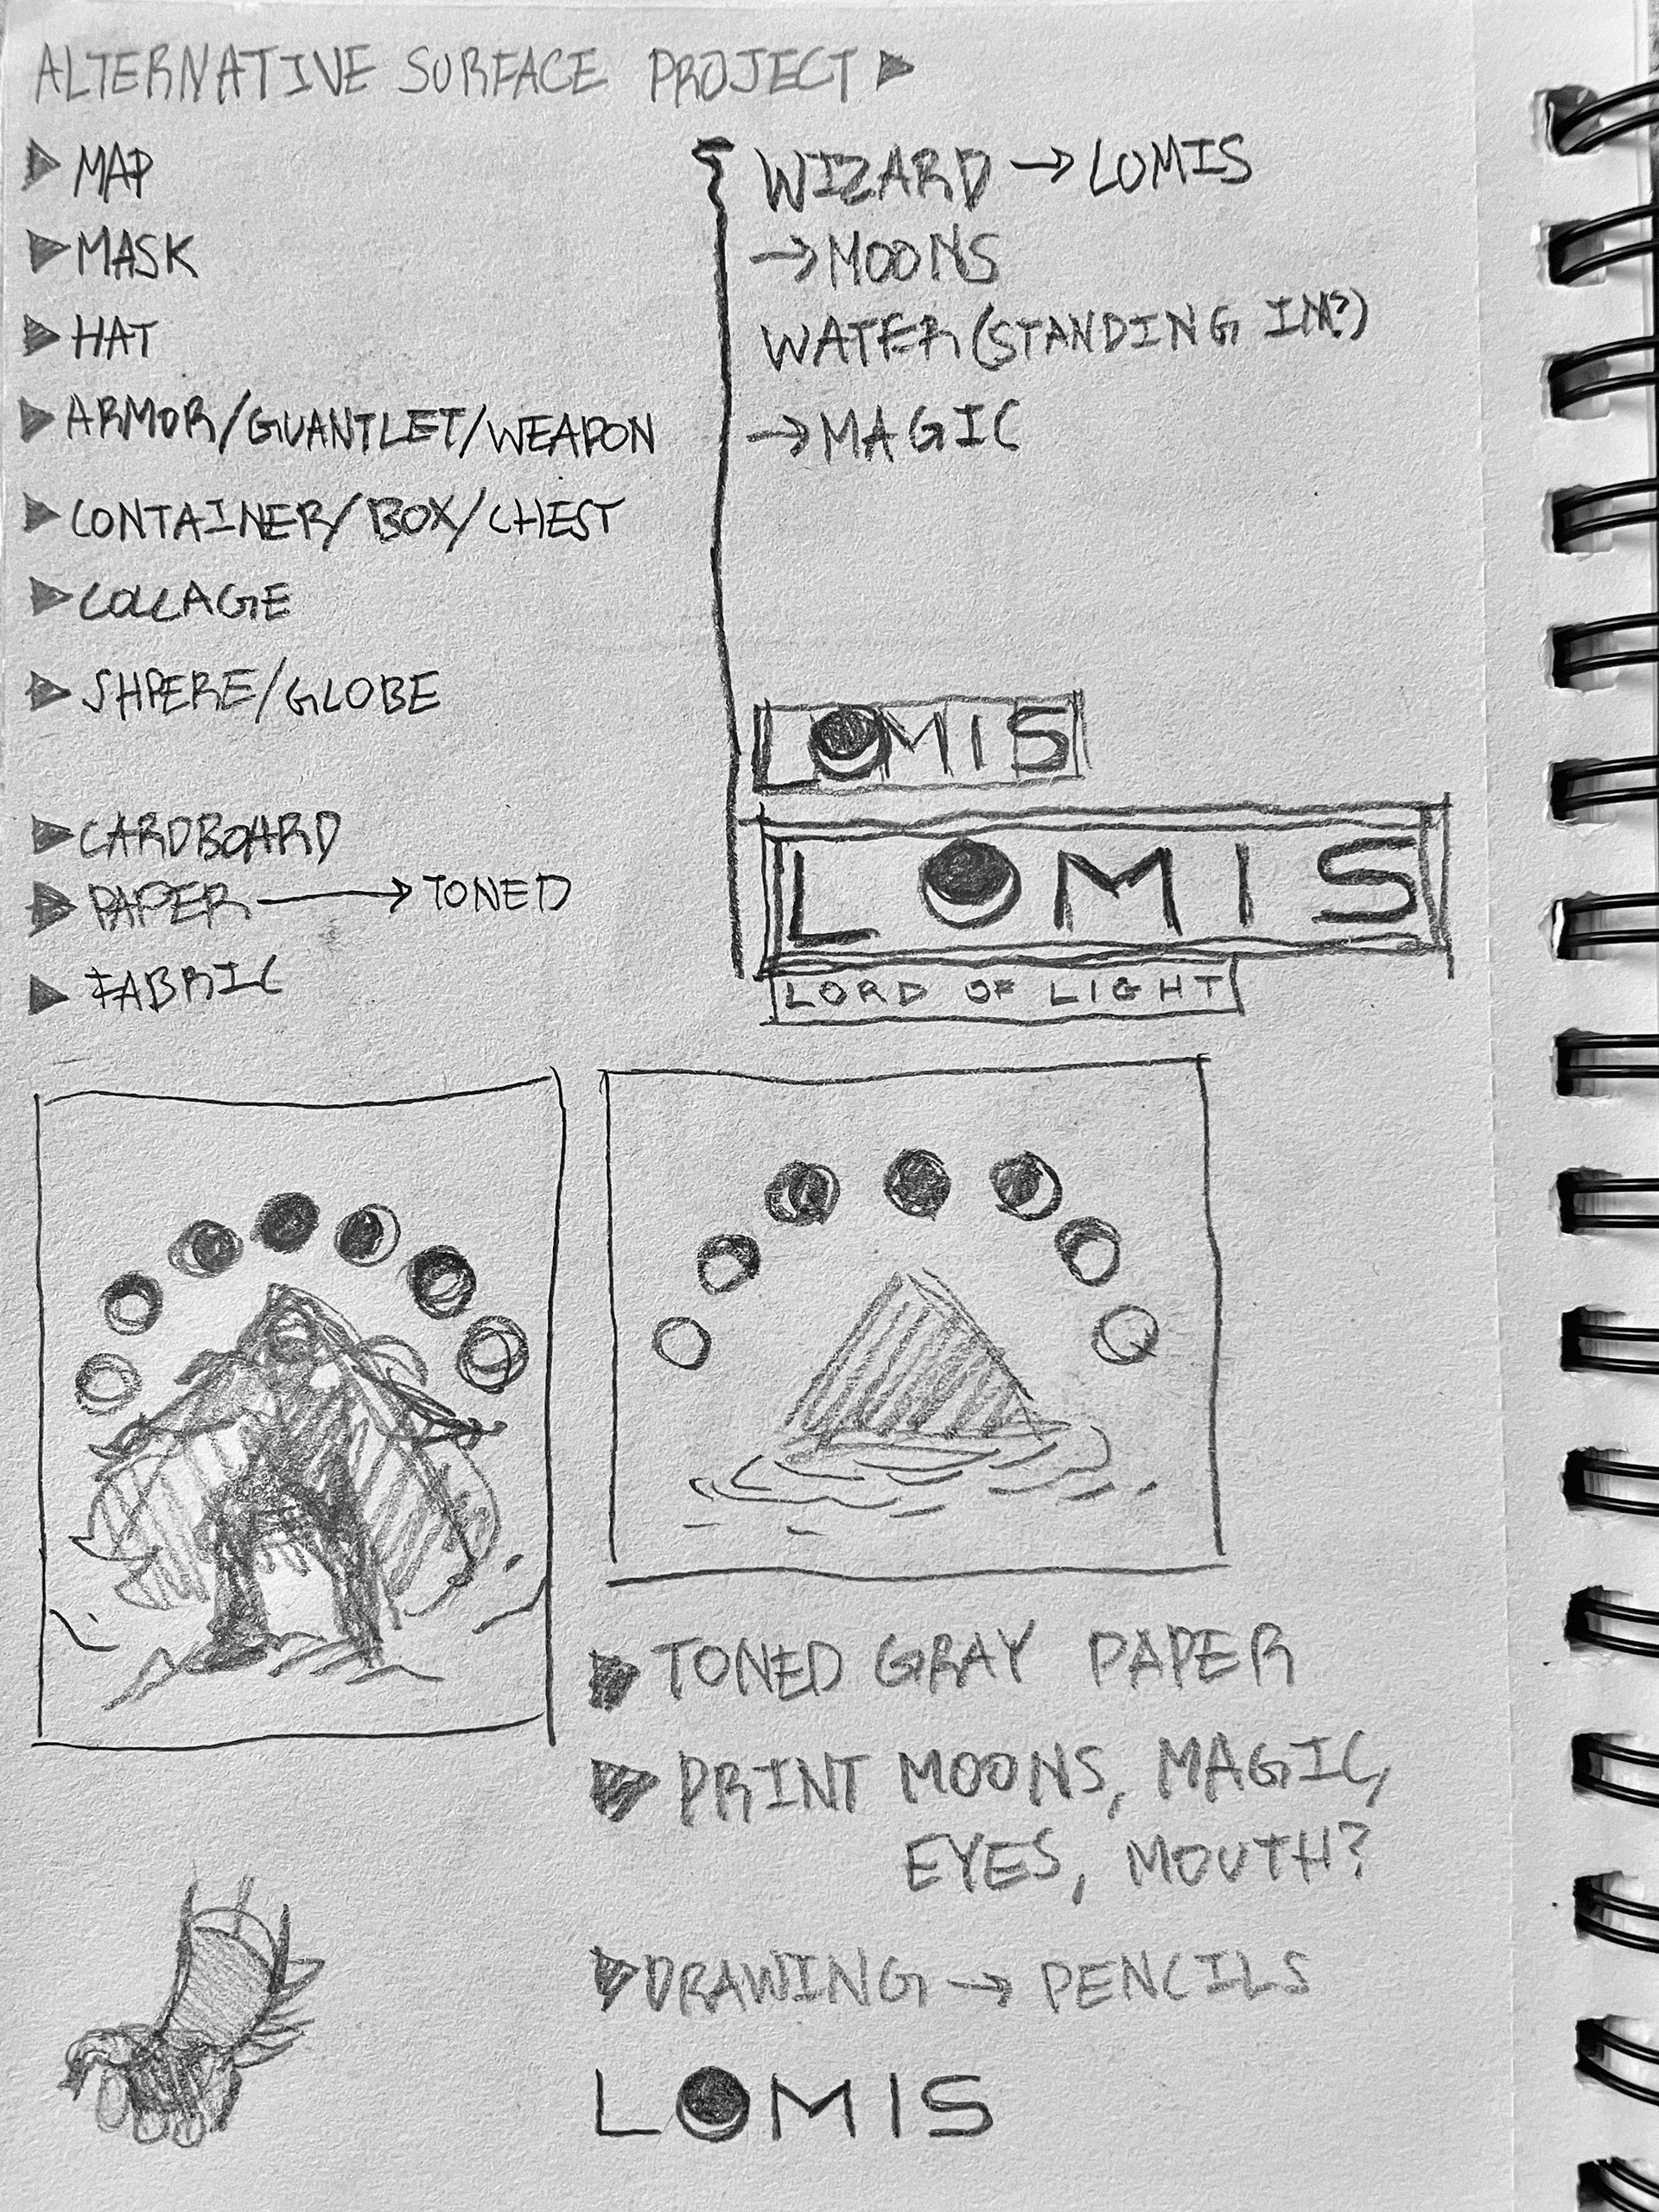 ALTERNATIVE SURFACE PROJECT
MAP
MASK
HAT
ARMOR/GUANTLET/WEAPON
CONTAINER/BOX/CHEST
COLLAGE
SHPERE/GLOBE
CARDBOARD
PAPER → TONED
FABRIC
WIZARD → LOMIS
→ MOONS
WATER (STANDING IN?)
→ MAGIC
LOMIS
LOMIS
LORD OF LIGHT
TONED GRAY PAPER
PRINT MOONS, MAGIC,
EYES, MOUTH?
DRAWING → PENCILS
LOMIS